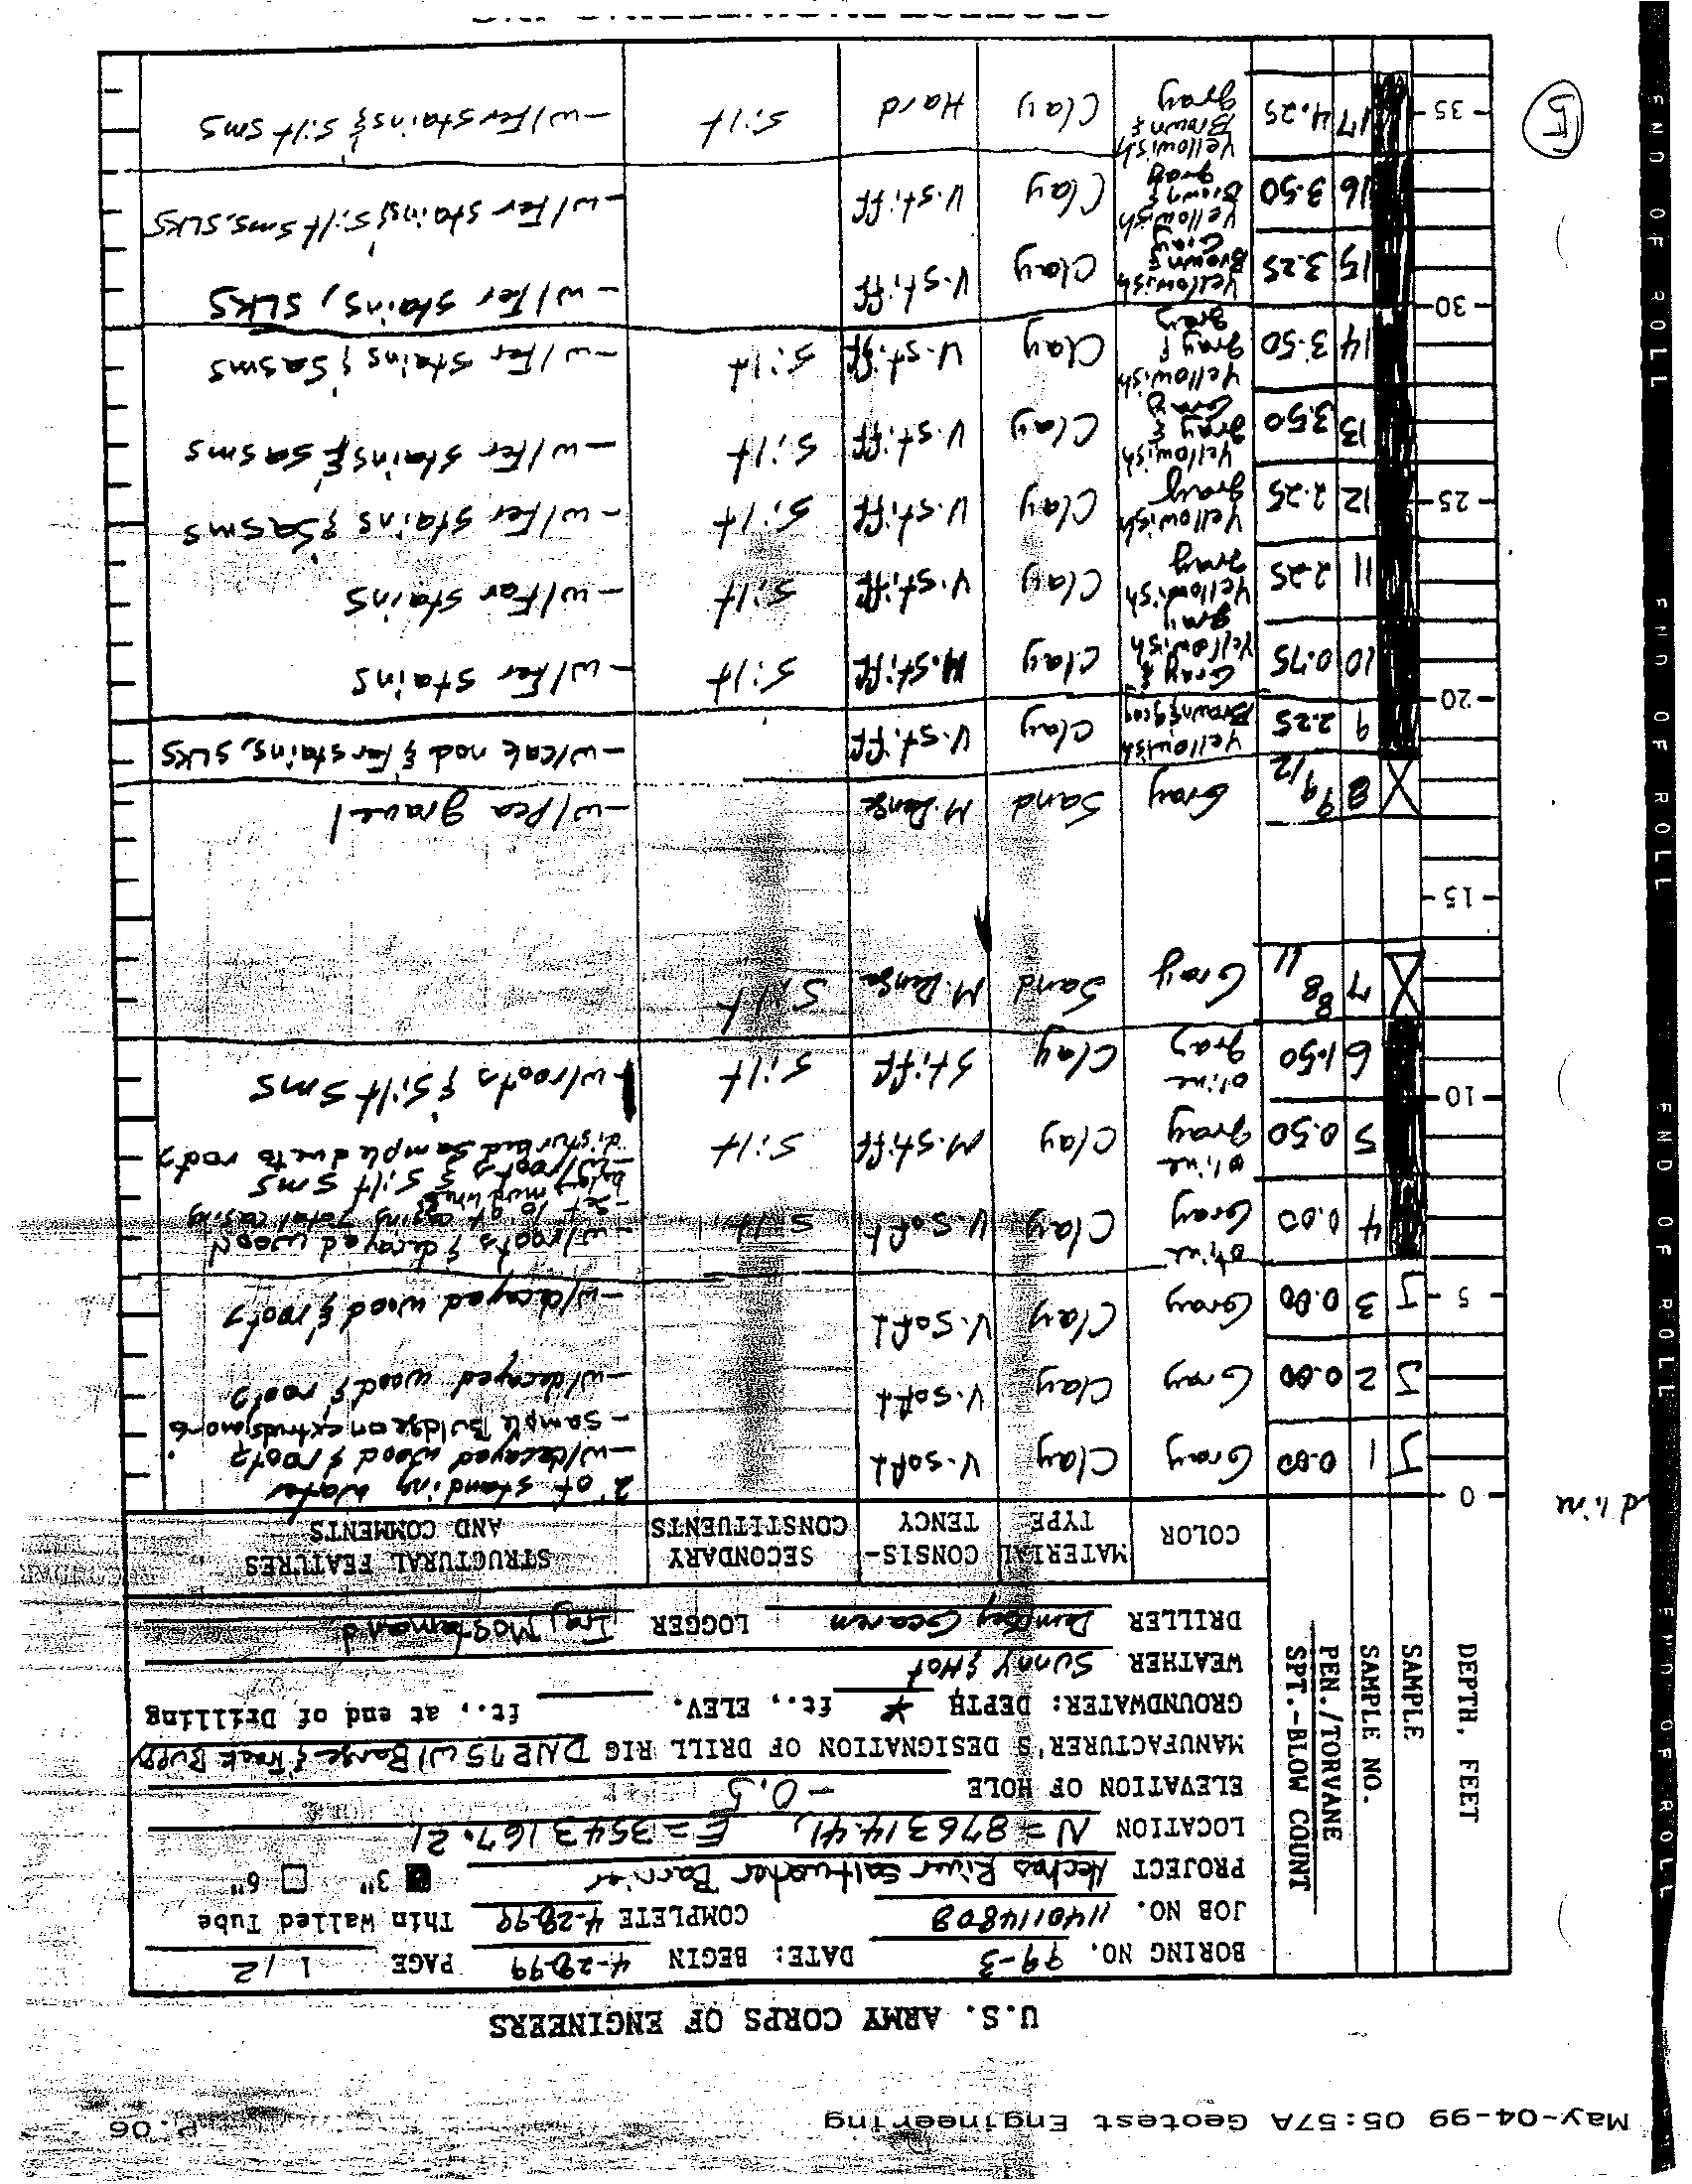 May-04-99 05:57A Geotest Engineering P.06
U.S. ARMY CORPS OF ENGINEERS
BORING NO. 99-3 DATE: BEGIN 4-28-99 PAGE 1/2
JOB NO. 1140114803 COMPLETE 4-28-99 Thin Walled Tube
PROJECT Neches River Saltwater Barrier 3" 6"
LOCATION N=876314.41, E=3543167.21
ELEVATION OF HOLE -0.5
MANUFACTURER'S DESIGNATION OF DRILL RIG W/Barge &
GROUNDWATER: DEPTH * ft., ELEV. ft., at end of Drilling
WEATHER Sunny & Hot
DRILLER LOGGER
DEPTH, FEET
SAMPLE
SAMPLE NO.
PEN./TORVANE
SPT.-BLOW COUNT
COLOR
MATERIAL TYPE
CONSIS-TENCY
SECONDARY CONSTITUENTS
STRUCTURAL FEATURES AND COMMENTS
0
2' of standing water
J 1 0.00 Gray Clay V.soft -w/decayed wood & roots
-Sample Buldge on
J 2 0.00 Gray Clay V.soft -w/decayed wood & roots
5 J 3 0.00 Gray Clay V.soft -w/decayed wood & roots
4 0.00 olive Gray Clay V.soft silt -w/roots & decayed wood
-Set 10' of casing total casing
below mudline
5 0.50 olive gray Clay M.stiff silt -w/roots & silt sms
disturbed sample due to roots
10 6 1.50 olive gray Clay Stiff silt -w/roots & silt sms
7 8 11 Gray Sand M.Dense silt
15
8 9 9/12 Gray Sand M.Dense -w/Pea gravel
9 2.25 Yellowish Brown & gray Clay V.stiff -w/cal nod & fer stains, SLKS
20 10 0.75 Gray & Yellowish gray Clay M.stiff silt -w/fer stains
11 2.25 Yellowish gray Clay V.stiff silt -w/fer stains
25 12 2.25 Yellowish gray Clay V.stiff silt -w/fer stains & sasms
13 3.50 Yellowish gray & Gray Clay V.stiff silt -w/fer stains & sasms
14 3.50 Yellowish gray & gray Clay V.stiff silt -w/fer stains & sasms
30 15 3.25 Yellowish Brown & Gray Clay V.stiff -w/fer stains, SLKS
16 3.50 Yellowish Brown & gray Clay V.stiff -w/fer stains & silt sms, SLKS
35 17 4.25 Yellowish Brown & gray Clay Hard silt -w/fer stains & silt sms
END OF ROLL
END OF ROLL
END OF ROLL
END OF ROLL